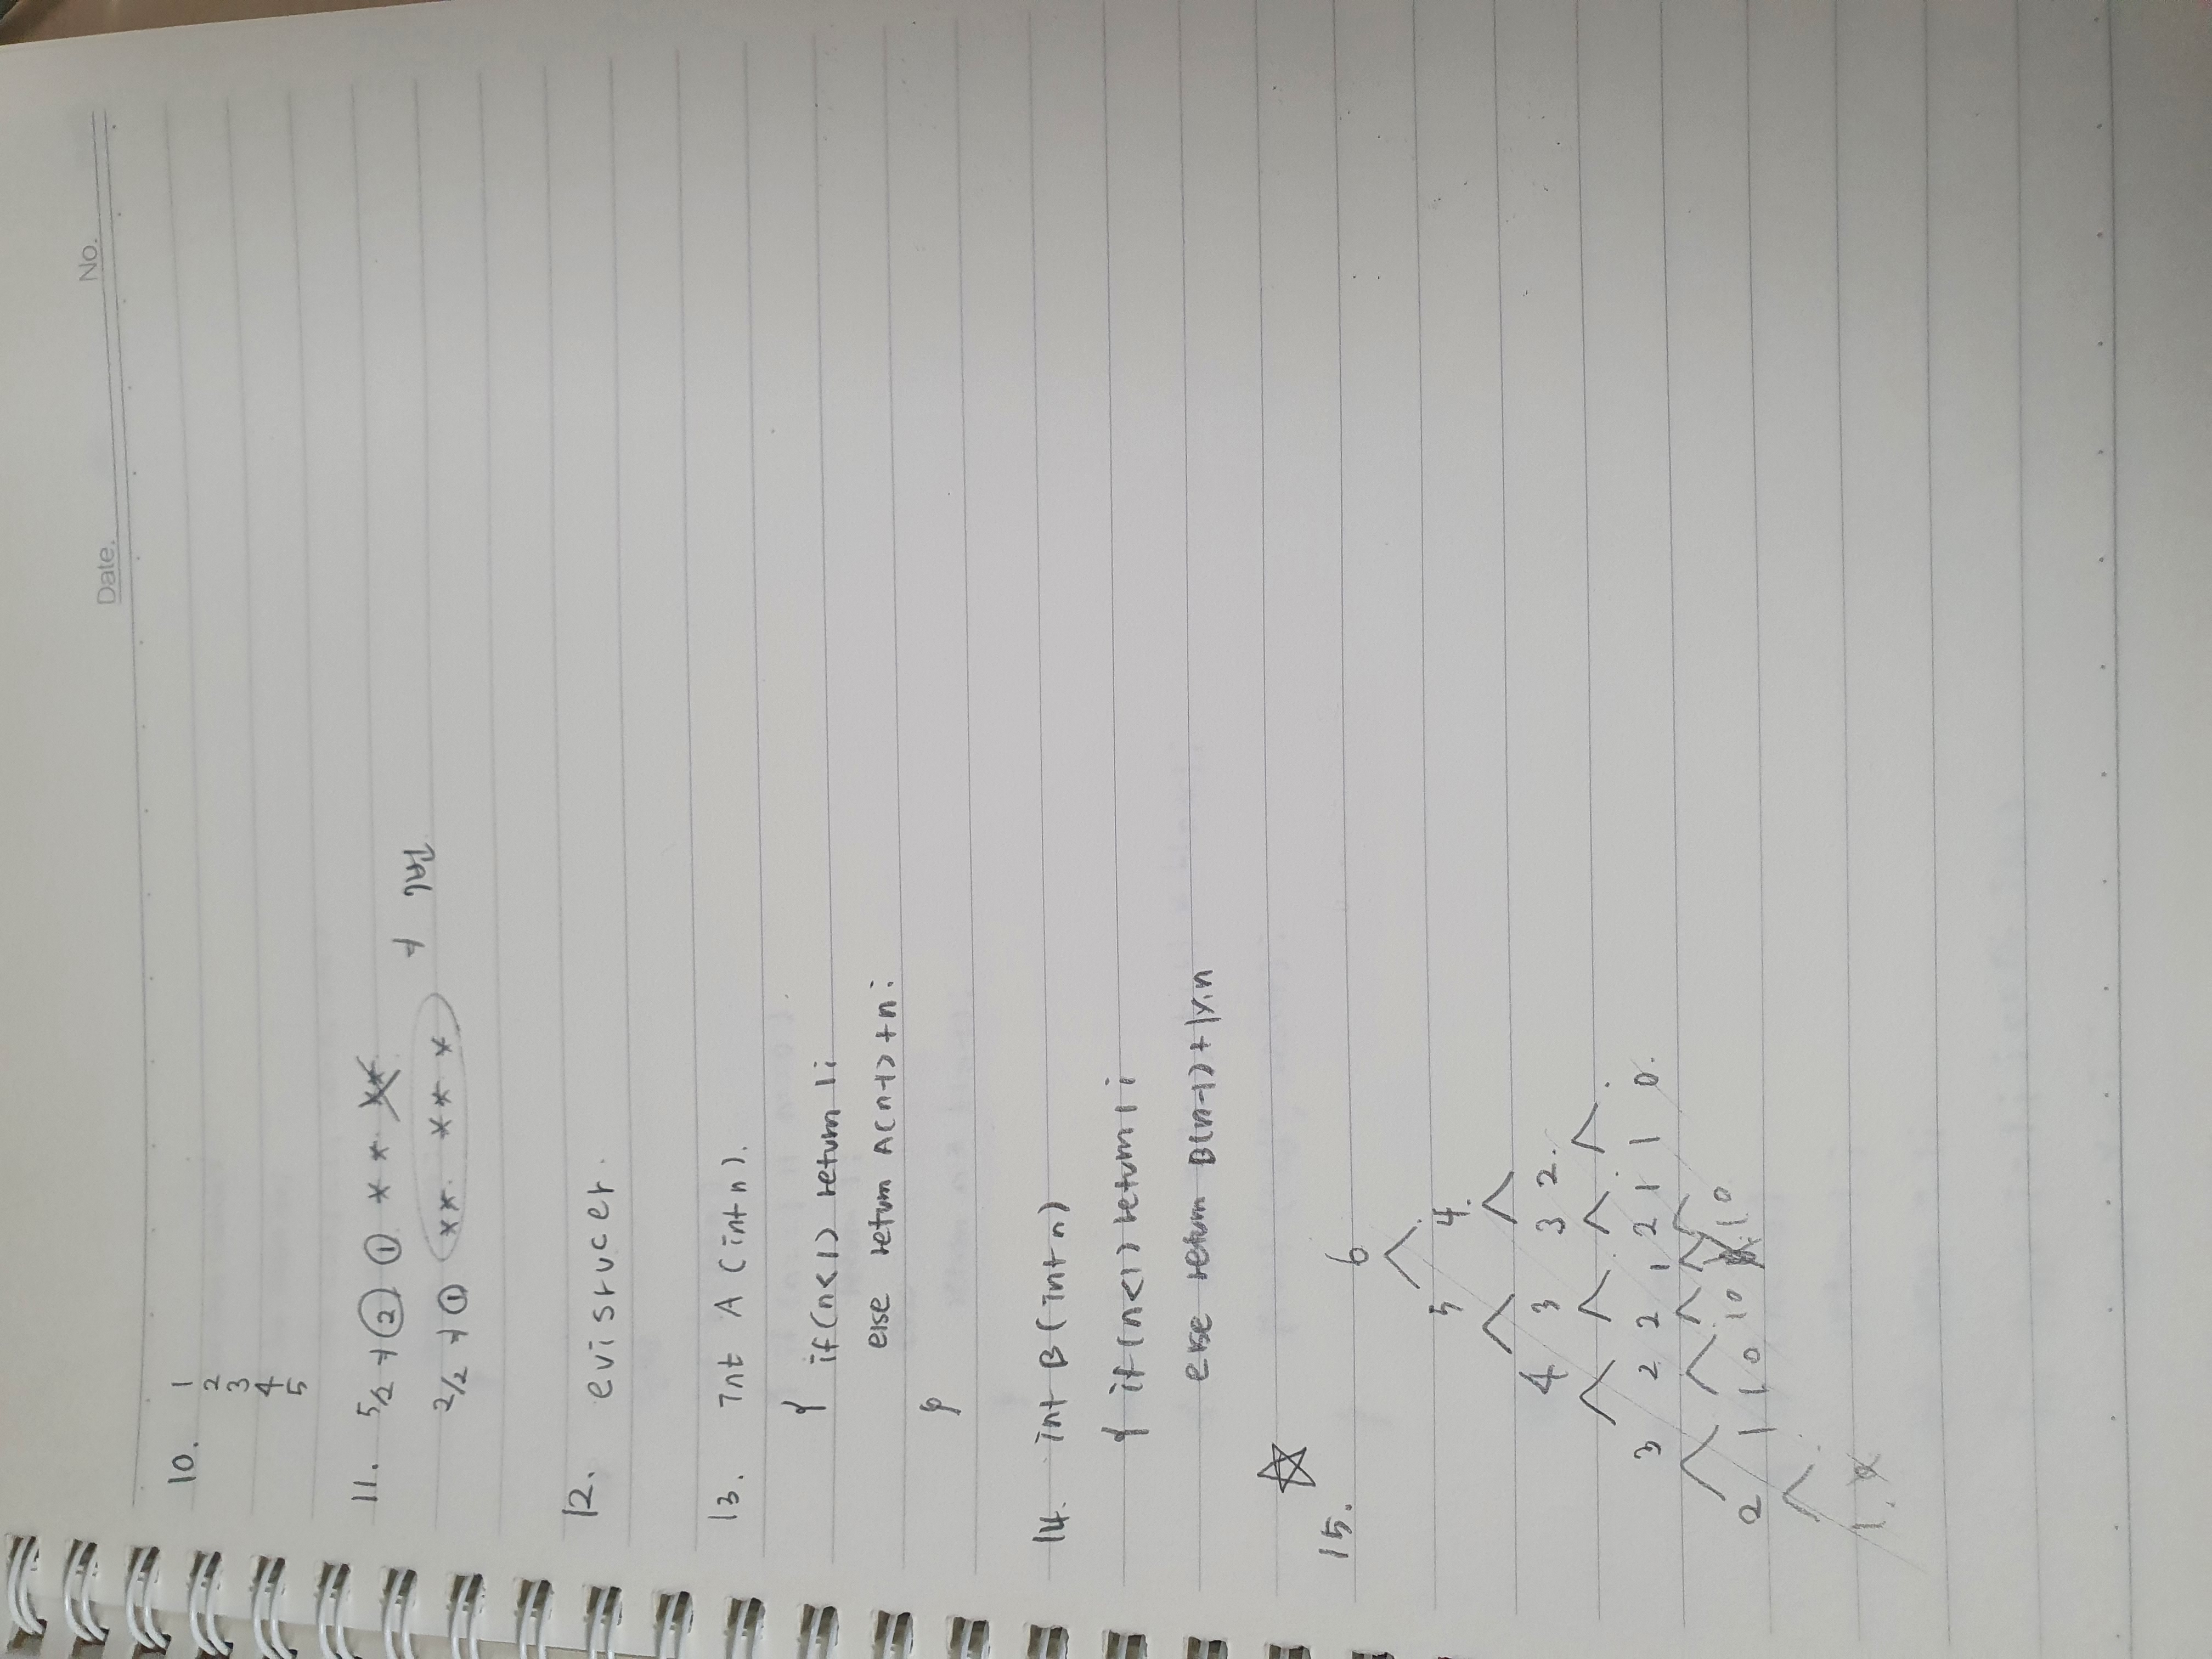 Date.
No.
10. 1
2
3
4
5
11. 5/2 → ② ① * *
2/2 → ① ** ** * → 7번
12. evisrucer.
13. int A (int n).
{
if(n<1) return 1;
else return A(n-1)+n;
}
14. int B(int n)
{ if(n<1) return 1;
else return B(n-1)+1/n
☆
15.
6
5 4.
4 3 3 2.
3 2 2 1 2 1 1 0.
2 1 1 0 1 0 1 0
1. 0